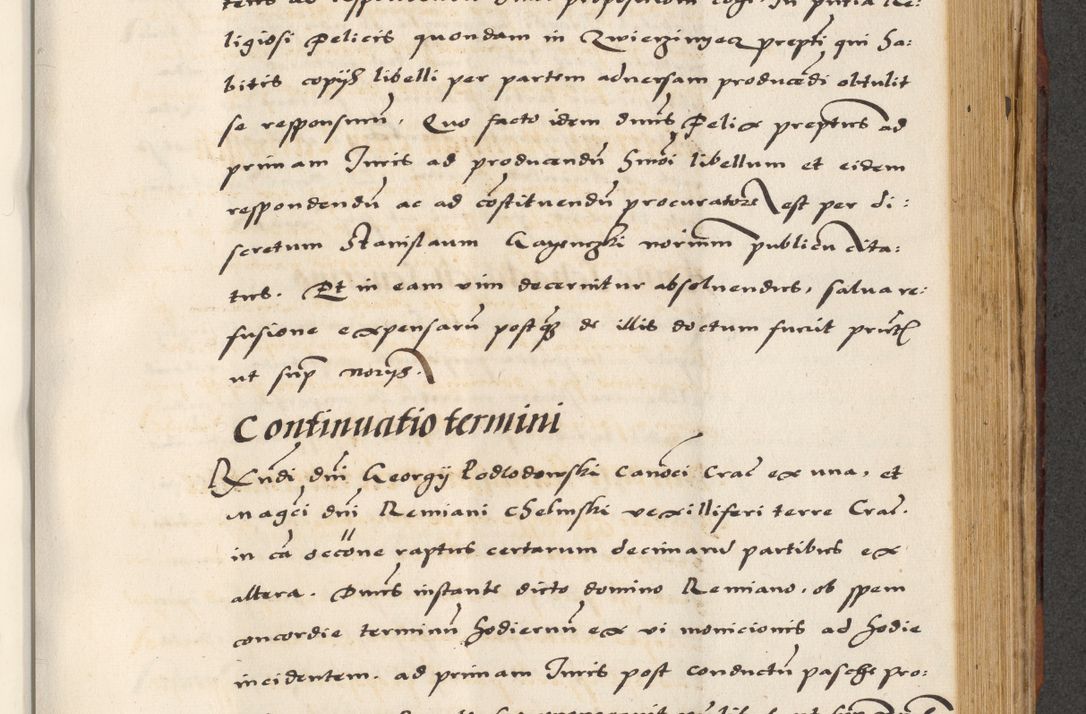 ligiosi Felicis quondam in Zwierzinyecz prepti qui ha:
bitis copijs libelli per partem adversam producẽdi obtulit
se responsurũ. Quo facto idem dnus Felix prepitus ad
primam Juris ad producendũ hmõi libellum et eidem
respondendũ ac ad cõstituendũ procuratorẽ est per di:
scretum Stanislaum notarium publicũ cita:
tus. Et in eam vim decernitur absolvendus, salva re:
fusione expensarũ postq̃ de illis doctum fuerit prñtib
ut supra norijs.
Continuatio termini
Rx̃ndi dñi Georgij Podlodowski Canõci Crac̃ ex una, et
Magc̃i dñi Remiani Chelmski vexilliferi terre Crac̃.
in cã occõne raptus certarum decimarũ partibus ex
altera. Dnus instante dicto domino Remiano, ob spem
concordie terminũ hodiernũ ex vi monicionis ad hodie
incidentem. ad primam Juris post conductũ pasche pro: